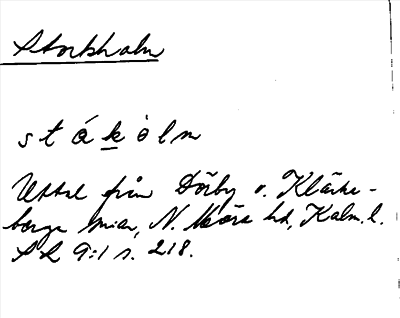 Stockholm
stákòlm
Uttal från Dörby o. Kläcke-
berga snrar, N. Möre hd, Kalm. l.
SL 9:1 s. 218.